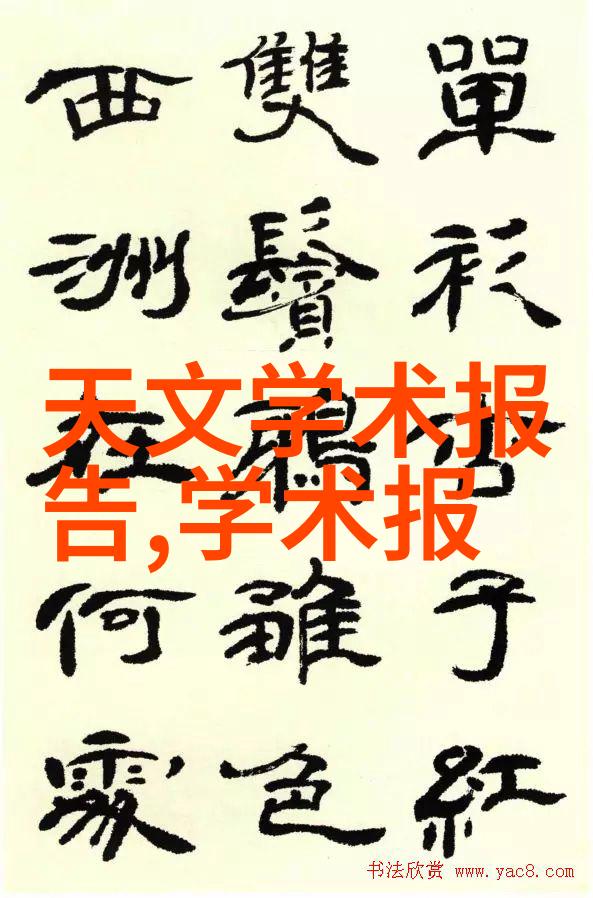 單衫杏子紅
雙鬢鴉雛色
西洲在何處
天文学术报
告,学术报
书法欣赏 www.yac8.com